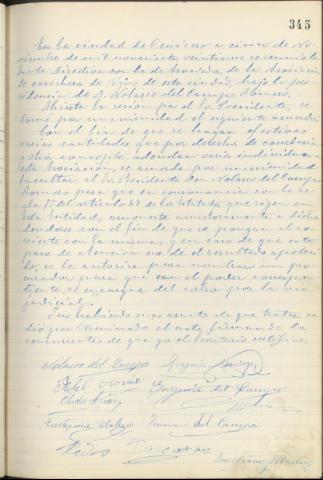 345
En la ciudad de Cenicero a cinco de No-
viembre de mil novecientos veintiuno, se reunió la
Junta Directiva con la de de la Asociación
de cosecheros de Vino de esta ciudad, bajo la pre-
sidencia de D. Nolasco del Campo
Abierta la sesión por el Sr. Presidente, se
tomó por unanimidad el siguiente acuerdo.
Con el fin de que se hagan efectivas
varias cantidades que por derechos de
y otros conceptos, adeudan varios individuos a
esta Asociación, se acuerda por unanimidad
facultar al Sr. Presidente Don Nolasco del Campo
para que en consonancia con la re-
gla del artículo 47 de los Estatutos que rigen en
esta Entidad, amoneste amistosamente a dichos
deudores con el fin de que se pongan al co-
rriente con la misma, y en caso de que este
paso de atención no dé el resultado apeteci-
do, se le autoriza para nombrar un pro-
curador para que con el poder correspon-
diente, se encargue del cobro por la vía
judicial.
Y no habiendo más asuntos de que tratar se
dió por terminado el acto, firmando los
concurrentes de que yo el Secretario certifico.
Nolasco del Campo
Fidel
del Campo
del Campo
Pedro
Aureliano